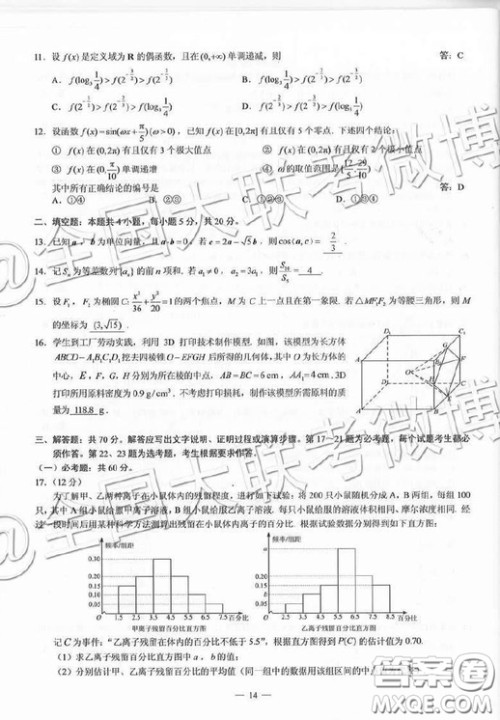 11. 设 f(x) 是定义域为 R 的偶函数，且在(0,+∞) 单调递减，则 答：C
A. f(log₃ 1/4) > f(2^(-3/2)) > f(2^(-2/3)) B. f(log₃ 1/4) > f(2^(-2/3)) > f(2^(-3/2))
C. f(2^(-3/2)) > f(2^(-2/3)) > f(log₃ 1/4) D. f(2^(-2/3)) > f(2^(-3/2)) > f(log₃ 1/4)
12. 设函数 f(x)=sin(ωx+π/5)(ω>0)，已知 f(x) 在[0,2π] 有且仅有 5 个零点. 下述四个结论：
① f(x) 在(0,2π) 有且仅有 3 个极大值点 ② f(x) 在(0,2π) 有且仅有 2 个极小值点
③ f(x) 在(0,π/10) 单调递增 ④ ω 的取值范围是[12/5,29/10)
其中所有正确结论的编号是 答：D
A. ①④ B. ②③ C. ①②③ D. ①③④
二、填空题：本题共 4 小题，每小题 5 分，共 20 分。
13. 已知 a，b 为单位向量，且 a·b=0，若 c=2a-√5b，则 cos⟨a,c⟩= 2/3 .
14. 记 Sₙ 为等差数列{aₙ} 的前 n 项和. 若 a₁≠0，a₂=3a₁，则 S₁₀/S₅= 4 .
15. 设 F₁，F₂ 为椭圆 C: x²/36+y²/20=1 的两个焦点，M 为 C 上一点且在第一象限. 若△MF₁F₂ 为等腰三角形，则 M
的坐标为 (3,√15) .
16. 学生到工厂劳动实践，利用 3D 打印技术制作模型. 如图，该模型为长方体
ABCD-A₁B₁C₁D₁ 挖去四棱锥 O-EFGH 后所得的几何体，其中 O 为长方体的
中心，E，F，G，H 分别为所在棱的中点，AB=BC=6cm，AA₁=4cm.
3D 打印所用原料密度为 0.9 g/cm³. 不考虑打印损耗，制作该模型所需原料的
质量为 118.8 g.
三、解答题：共 70 分。解答应写出文字说明、证明过程或演算步骤。第 17～21 题为必考题，每个试题考生都必
须作答。第 22、23 题为选考题，考生根据要求作答。
（一）必考题：共 60 分。
17.（12 分）
为了解甲、乙两种离子在小鼠体内的残留程度，进行如下试验：将 200 只小鼠随机分成 A，B两组，每组 100
只，其中 A组小鼠给服甲离子溶液，B组小鼠给服乙离子溶液. 每只小鼠给服的溶液体积相同、摩尔浓度相同. 经
过一段时间后用某种科学方法测算出残留在小鼠体内离子的百分比. 根据试验数据分别得到如下直方图：
频率/组距 频率/组距
O 1.5 2.5 3.5 4.5 5.5 6.5 7.5 百分比 O 2.5 3.5 4.5 5.5 6.5 7.5 8.5 百分比
甲离子残留百分比直方图 乙离子残留百分比直方图
记 C 为事件：“乙离子残留在体内的百分比不低于 5.5”，根据直方图得到 P(C) 的估计值为 0.70.
（1）求乙离子残留百分比直方图中 a，b 的值；
（2）分别估计甲、乙离子残留百分比的平均值（同一组中的数据用该组区间的中
— 14 —
@全国大联考微博
@全国大联考微博
答案圈
MXQE.COM